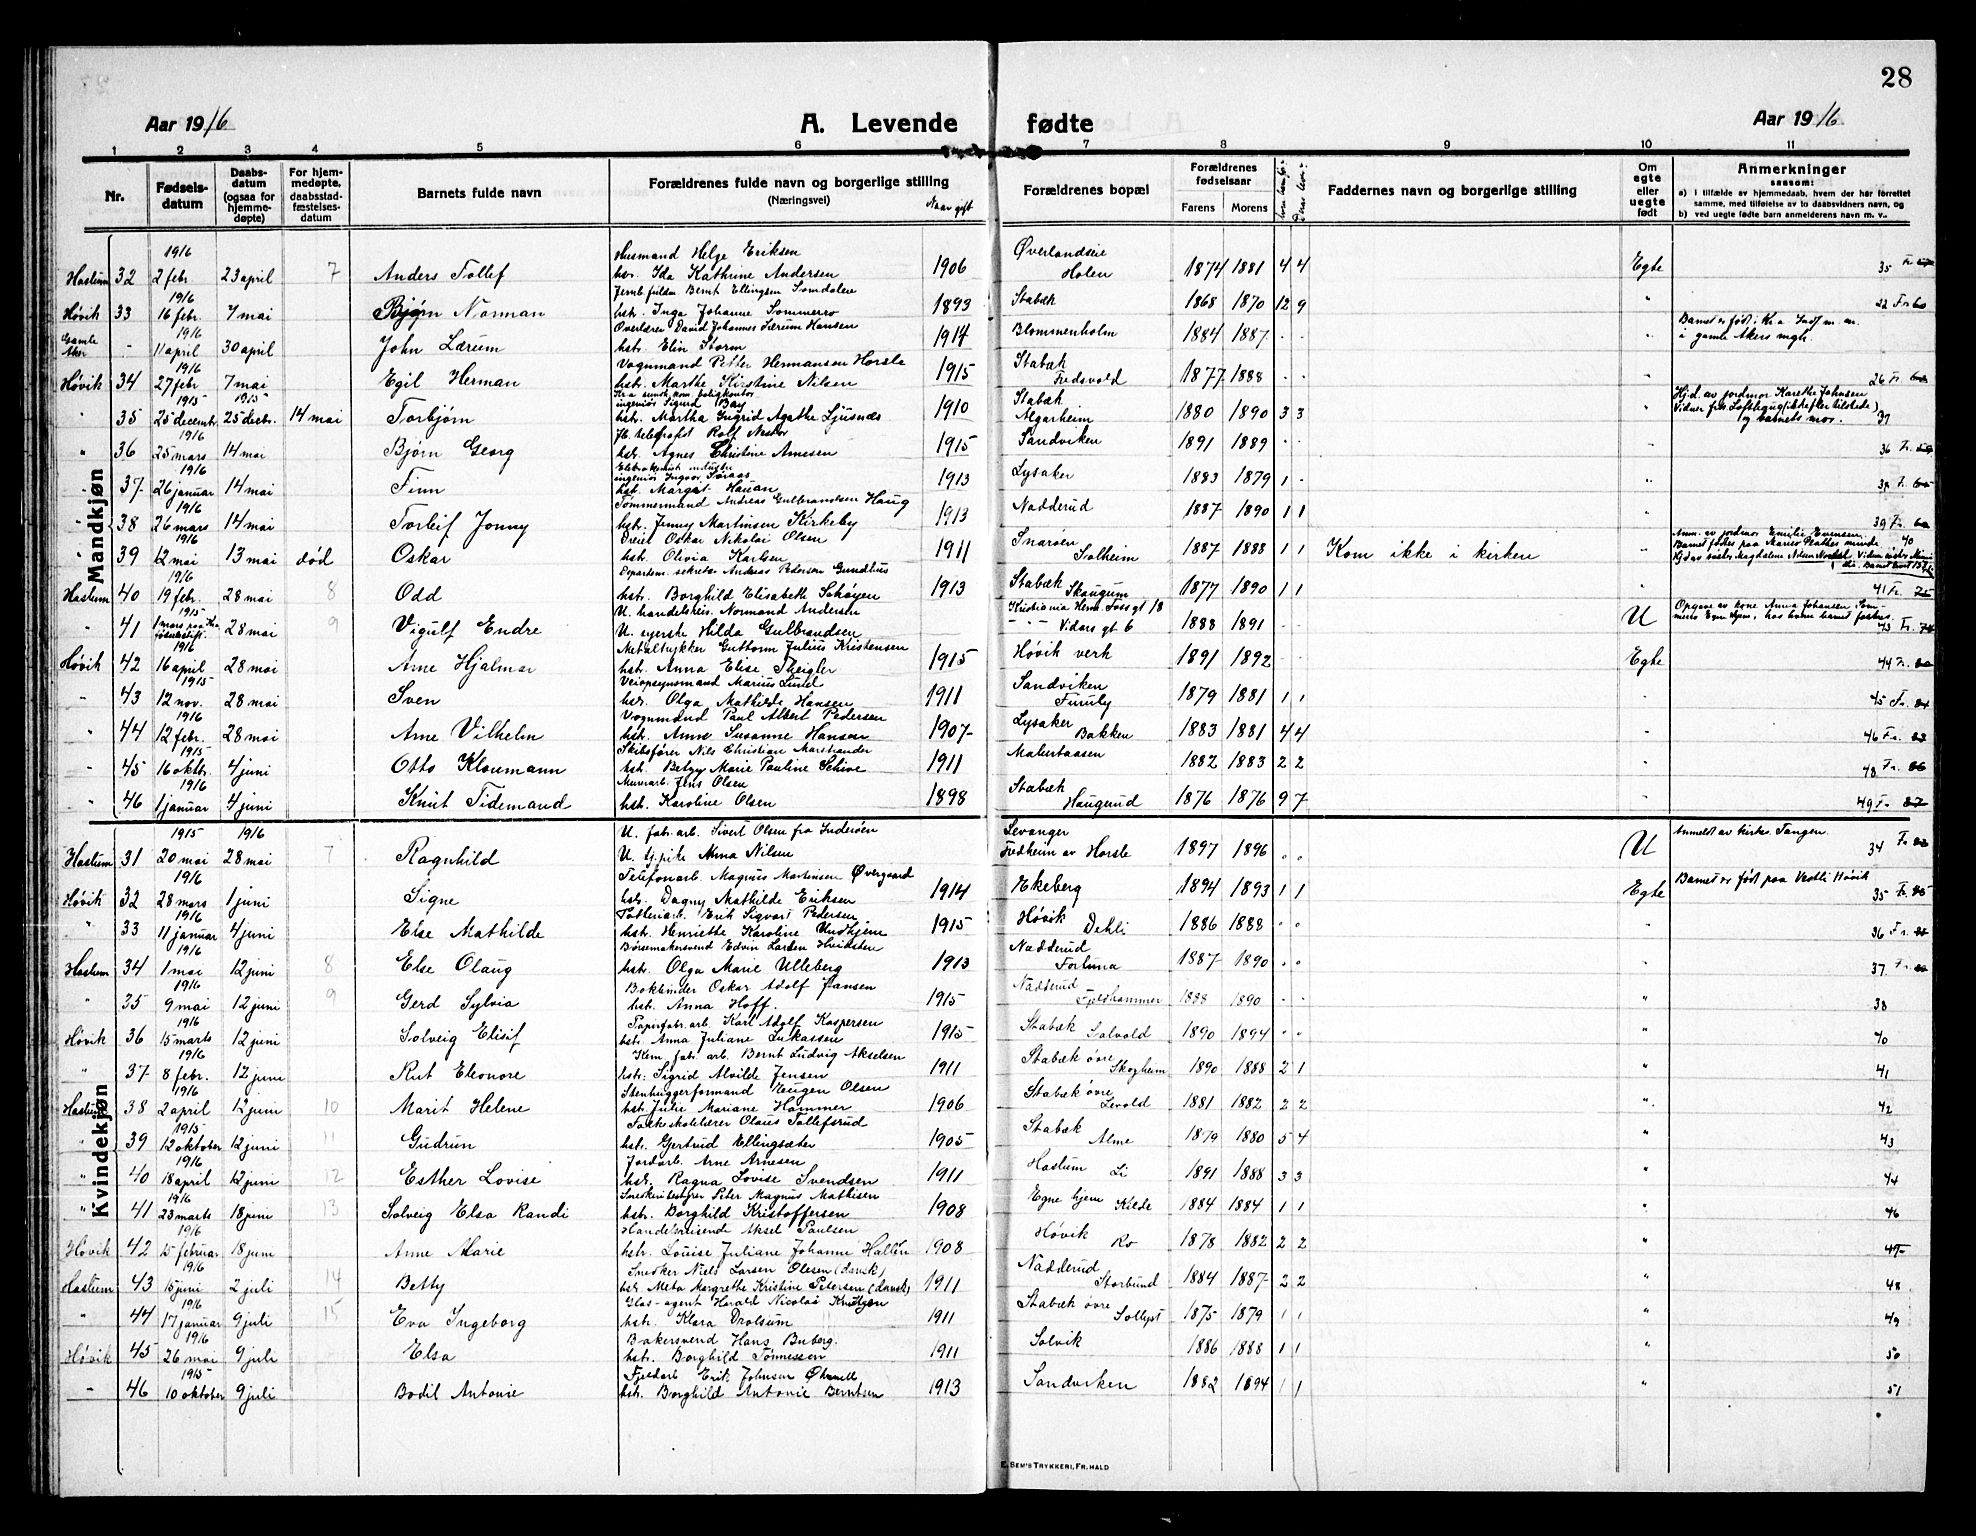 28
Aar 1916
A. Levende fødte
Aar 1916
1 2 3 4 5 6 7 8 9 10 11
Nr.
Fødsels-datum
Daabs-datum (ogsaa for hjemme-døpte)
For hjem-medøpte, daabsstad-fæstelses-datum
Barnets fulde navn
Forældrenes fulde navn og borgerlige stilling (Næringsvei)
Naar gift
Forældrenes bopæl
Forældrenes fødselsaar
Farens Morens
Faddernes navn og borgerlige stilling
Om egte eller uegte født
Anmerkninger
saasom:
a) i tilfælde av hjemmedaab, hvem der har forrettet samme, med tilføielse av to daabsvidners navn, og
b) ved uegte fødte barn anmelderens navn m. v..
Mandkjøn
1916 Husmand Helge Eriksen Øverlandseie
Haslum 32 2 febr 23 april 7 Anders Tollef hstr. Ida Kathrine Andersen 1906 Holen 1874 1881 4 4 Egte 35 Fr.
1916 Bernt Ellingsen
Høvik 33 16 febr. 7 mai Bjørn Norman hstr. Inga Johanne Sommerro 1893 Stabæk 1868 1870 12 9 " 22 Fr.
1916 Overlærer David Johannes Lærum Hansen Barnet er født i Kr.a
Gamle Aker - 11 april 30 april John Lærum hstr. Elin Storm 1914 Blommenholm 1884 1887 - - " i gamle Akers mgh.
1916 Vognmand Petter Hermansen Horsle Stabæk
Høvik 34 27 febr 7 mai Egil Herman hstr. Marthe Kirstine Nilsen 1915 Fredsvold 1877 1888 - - " 26 Fr.
1915 1915 ingeniør Sigurd Bay Stabæk Hj.d. av jordmor Karethe Johnsen
" 35 25 decembr. 25 decbr. 14 mai Torbjørn hstr. Martha Ingrid Agathe Ljusnæs 1910 Algarheim 1880 1890 3 3 " og barnets mor. 37
1916 telegrafist Rolf
" 36 25 mars 14 mai Bjørn Georg hstr. Agnes Christine Arnesen 1915 Sandviken 1891 1889 - - " 36 Fr.
1916 ingeniør Ingvar
" 37 26 januar 14 mai Finn hstr. Margit Hauan 1913 Lysaker 1883 1879 1 - "
1916 Tømmermand Andreas Gulbrandsen Haug
" 38 26 mars 14 mai Torleif Jonny hstr. Jenny Martinsen Kirkeby 1913 Nadderud 1887 1890 1 1 " 39 Fr.
1916 Dreier Oskar Nikolai Olsen Snarøen Anm. av jordmor Emilie Evensen.
39 12 mai 13 mai død Oskar hstr. Olivia Karlsen 1911 Solheim 1887 1888 1 1 Kom ikke i kirken " 40
1916 Departem. sekretær Andreas Pedersen Gundhus Stabæk
Haslum 40 19 febr. 28 mai 8 Odd hstr. Borghild Elisabeth Schøyen 1913 Skaugum 1877 1890 1 1 " 41 Fr.
1915 U. handelsreis. Normand Andersen Kristiania Herm. Foss gt 18
" 41 1 mars 28 mai 9 Vigulf Endre U. syerske Hilda Gulbrandsen - - - Vidars gt. 6 1888 1891 U 43 Fr.
1916 Metaltrykker Guttorm Julius Kristensen
Høvik 42 16 april 28 mai Arne Hjalmar hstr. Anna Elise Theigler 1915 Høvik verk 1891 1892 - - Egte 44 Fr.
1915 Veiopsynsmand Marius Sandviken
- 43 12 nov. 28 mai Sven hstr. Olga Mathilde Hansen 1911 Furuly 1879 1881 1 1 - 45 Fr.
1916 Vognmand Paul Albert Pedersen Lysaker
" 44 12 febr. 28 mai Arne Vilhelm hstr. Anne Susanne Hansen 1907 Bakken 1883 1881 4 4 - 46 Fr.
1915 Skibsfører Nils Christian Marstrander
" 45 16 oktbr. 4 juni Otto Kloumann hstr. Betzy Marie Pauline Schive 1911 1882 1883 2 2 - 48 Fr.
1916 Murerarb. Jens Olsen Stabæk
" 46 1 januar 4 juni Knut Tidemand hstr. Karoline Olsen 1898 Haugrud 1876 1876 9 7 - 49 Fr.
Kvindekjøn
1915 1916 U. fabr. arb. Sivert Olsen fra Inderøen Levanger Anmeldt av kirkes. Tangen.
Haslum 31 20 mai 28 mai 7 Ragnhild U. tj.pike Anna Nilsen Fredheim av Horsle 1897 1896 U 34 Fr.
1916 Telefonarb. Magnus Martensen Øvergaard Barnet er født paa Vestli Høvik
Høvik 32 28 mars 1 juni Signe hstr. Dagny Mathilde Eriksen 1914 Ekeberg 1894 1893 1 1 Egte 35 Fr.
1916 Potteriarb. Erik Sigvart Pedersen Høvik
" 33 11 januar 4 juni Else Mathilde hstr. Henriette Karoline 1915 Dehli 1886 1888 36 Fr.
1916 Børsemakersvend Edvin Larsen Nadderud
Haslum 34 1 mai 12 juni 8 Else Olaug hstr. Olga Marie Ulleberg 1913 Fortuna 1887 1890 37 Fr.
1916 Bokbinder Oskar Adolf Jansen Nadderud
" 35 9 mai 12 juni 9 Gerd Sylvia hstr. Anna Hoff. 1915 Fjeldhammer 1888 1890 - - " 38
1916 Papirfabr.arb. Karl Adolf Kaspersen
Høvik 36 15 marts 12 juni Solveig Elisif hstr. Anna Juliane Lukassen 1915 Stabæk Solvold 1890 1894 " 40
1916 Kem. fabr. arb. Bernt Ludvig Akselsen Stabæk øvre
" 37 8 febr. 12 juni Rut Eleonore hstr. Sigrid Alvilde Jensen 1911 Skogheim 1890 1888 2 1 " 41
1916 Stenhuggerformand Eugen Olsen Stabæk øvre
Haslum 38 2 april 12 juni 10 Marit Helene hstr. Julie Mariane Hammer 1906 Levold 1881 1882 2 2 " 42
1915 Folkeskolelærer Olaus Tollefsrud Stabæk
" 39 12 oktober 12 juni 11 Gudrun hstr. Gjertrud Ellingsæter 1905 Alme 1879 1880 5 4 " 43
1916 Jordarb. Arne Arnesen Haslum
" 40 18 april 12 juni 12 Esther Lovise hstr. Ragna Lovise Svendsen 1911 Li 1891 1888 3 3 " 44
1916 Snedkeribestyrer Peter Magnus Mathisen
" 41 23 marts 18 juni 13 Solveig Elsa Randi hstr. Borghild Kristoffersen 1908 Egne hjem Kilde 1884 1884 1 1 " 46
1916 Handelsreisende Aksel Paulsen Høvik
Høvik 42 15 februar 18 juni Anne Marie hstr. Louise Juliane Johanne Hallén 1908 Ro 1878 1882 2 2 "
1916 Snedker Niels Larsen Olesen (dansk) Nadderud
Haslum 43 15 juni 2 juli 14 Betty hstr. Meta Margrethe Kristine Petersen (dansk) 1911 Storbund 1884 1887 2 2 " 48
1916 Glas-agent Harald Nicolai Knutzen Stabæk øvre
" 44 17 januar 9 juli 15 Eva Ingeborg hstr. Klara Drolsum 1911 Sollyst 1875 1879 1 1 " 49
1916 Bakersvend Hans Buberg.
Høvik 45 26 mai 9 juli Elsa hstr. Borghild Tønnessen 1911 Solvik 1886 1888 1 1 " 50
1915 Fjeldarb. Erik Johnsen
- 46 10 oktober 9 juli Bodil Antonie hstr. Borghild Antonie Berntsen 1913 Sandviken 1882 1894 1 1 " 51
E. SEM'S TRYKKERI, FR.HALD